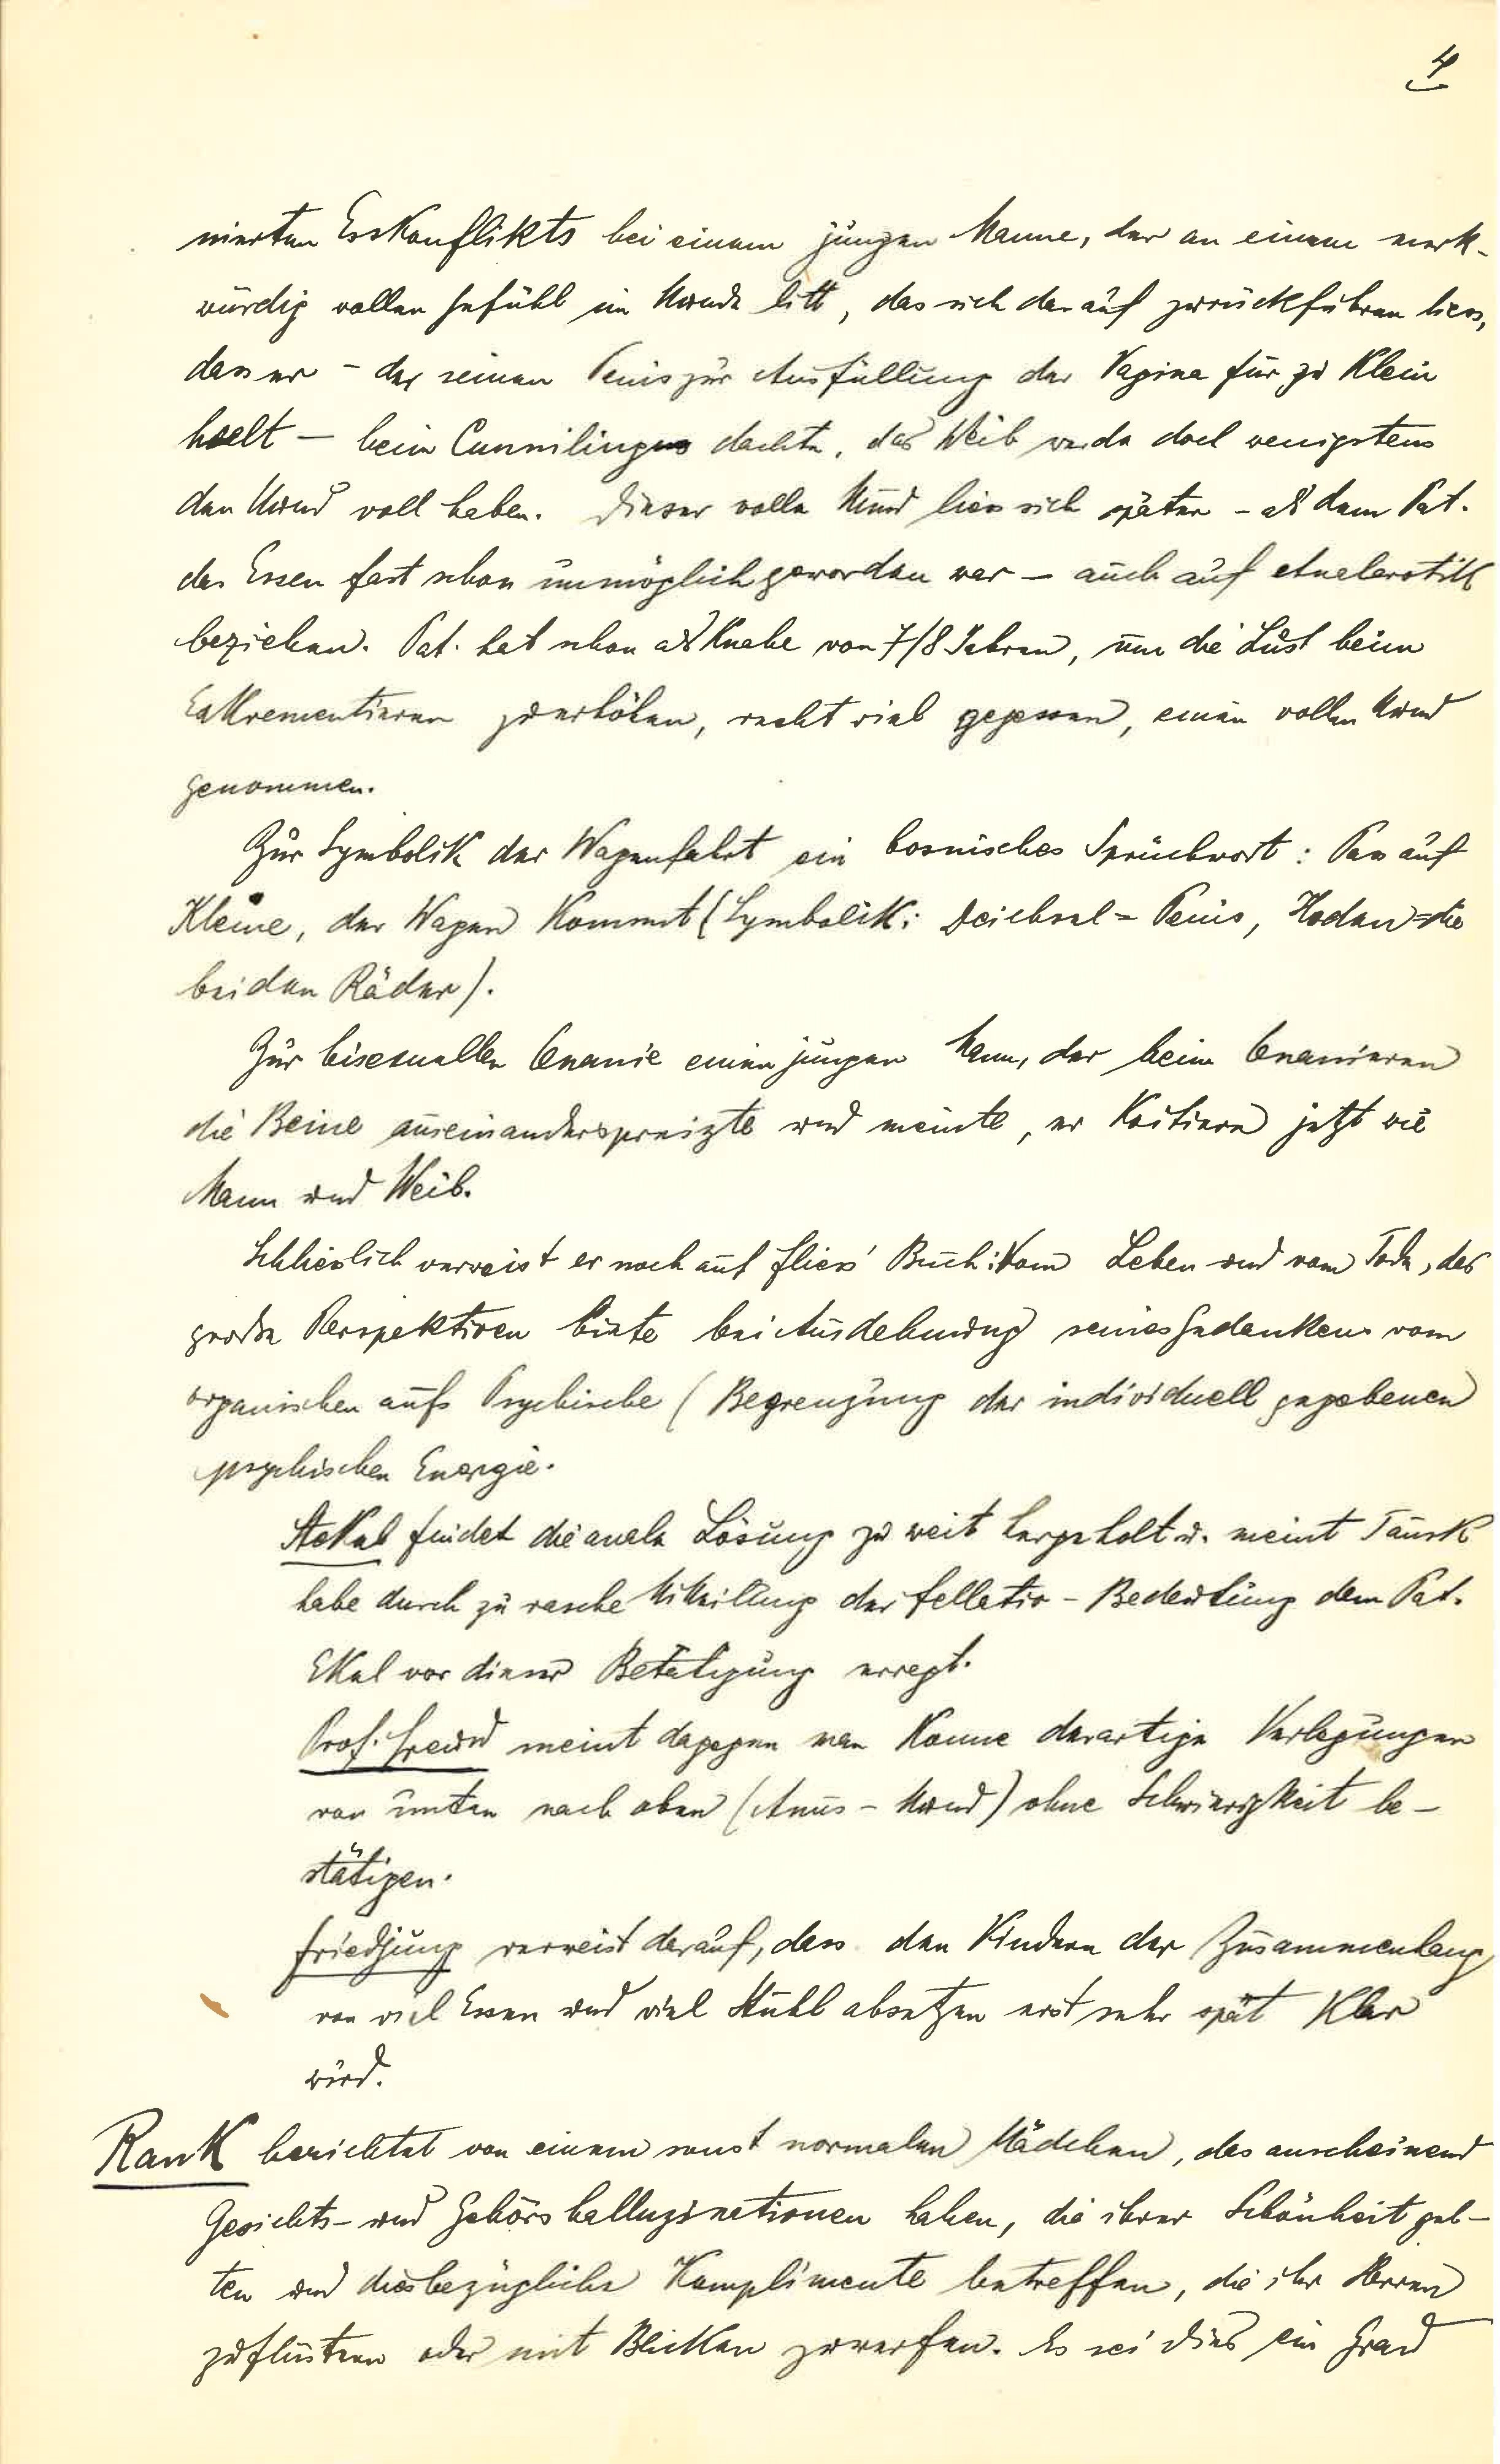 4
nierten Esskonflikts bei einem jungen Manne, der an einem merk-
würdig vollen Gefühl im Munde litt, das sich darauf zurückführen liess,
dass er – der seinen Penis zur Ausfüllung der Vagina für zu klein
haelt – beim Cunnilingus dachte, das Weib werde doch wenigstens
den Mund voll haben. Dieser volle Mund liess sich später – als dem Pat.
das Essen fast schon unmöglich geworden war – auch auf Analerotik
beziehen. Pat. hat schon als Knabe von 7/8 Jahren, um die Lust beim
Exkrementieren zu erhöhen, recht viel gegessen, einen vollen Mund
genommen.
Zur Symbolik der Wagenfahrt ein bosnisches Sprüchwort: Pass auf
Kleine, der Wagen kommt (Symbolik: Deichsel = Penis, Hoden = die
beiden Räder).
Zur bisexuellen Onanie einen jungen Mann, der beim Onanieren
die Beine auseinanderspreizte und meinte, er koitiere jetzt wie
Mann und Weib.
Schliesslich verweist er noch auf Fliess' Buch: Vom Leben und vom Tode, das
grosse Perspektiven biete bei Ausdehnung seines Gedankens vom
organischen aufs Psychische (Begrenzung der individuell gegebenen
psychischen Energie.
Stekel findet die anale Lösung zu weit hergeholt u. meint Tausk
habe durch zu rasche Mitteilung der Fellatio-Bedeutung dem Pat.
Ekel vor dieser Betätigung erregt.
Prof. Freud meint dagegen man könne derartige Verlegungen
von unten nach oben (Anus – Mund) ohne Schwierigkeit be-
stätigen.
Friedjung verweist darauf, dass den Kindern der Zusammenhang
von viel Essen und viel Stuhl absetzen erst sehr spät klar
wird.
Rank berichtet von einem sonst normalen Mädchen, das anscheinend
Gesichts- und Gehörshalluzinationen haben, die ihrer Schönheit gel-
ten und diesbezügliche Komplimente betreffen, die ihr Herren
zuflüstern oder mit Blicken zuwerfen. Es sei dies ein Grad